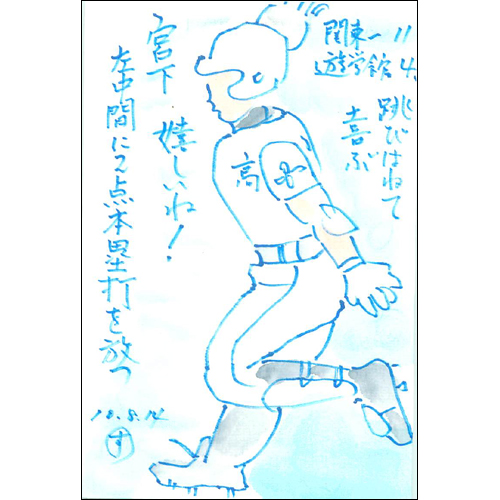 関東一 11
遊学館 4
跳びはねて
喜ぶ
宮下 嬉しいね!
左中間に2点本塁打を放つ
高
10.8.14
す